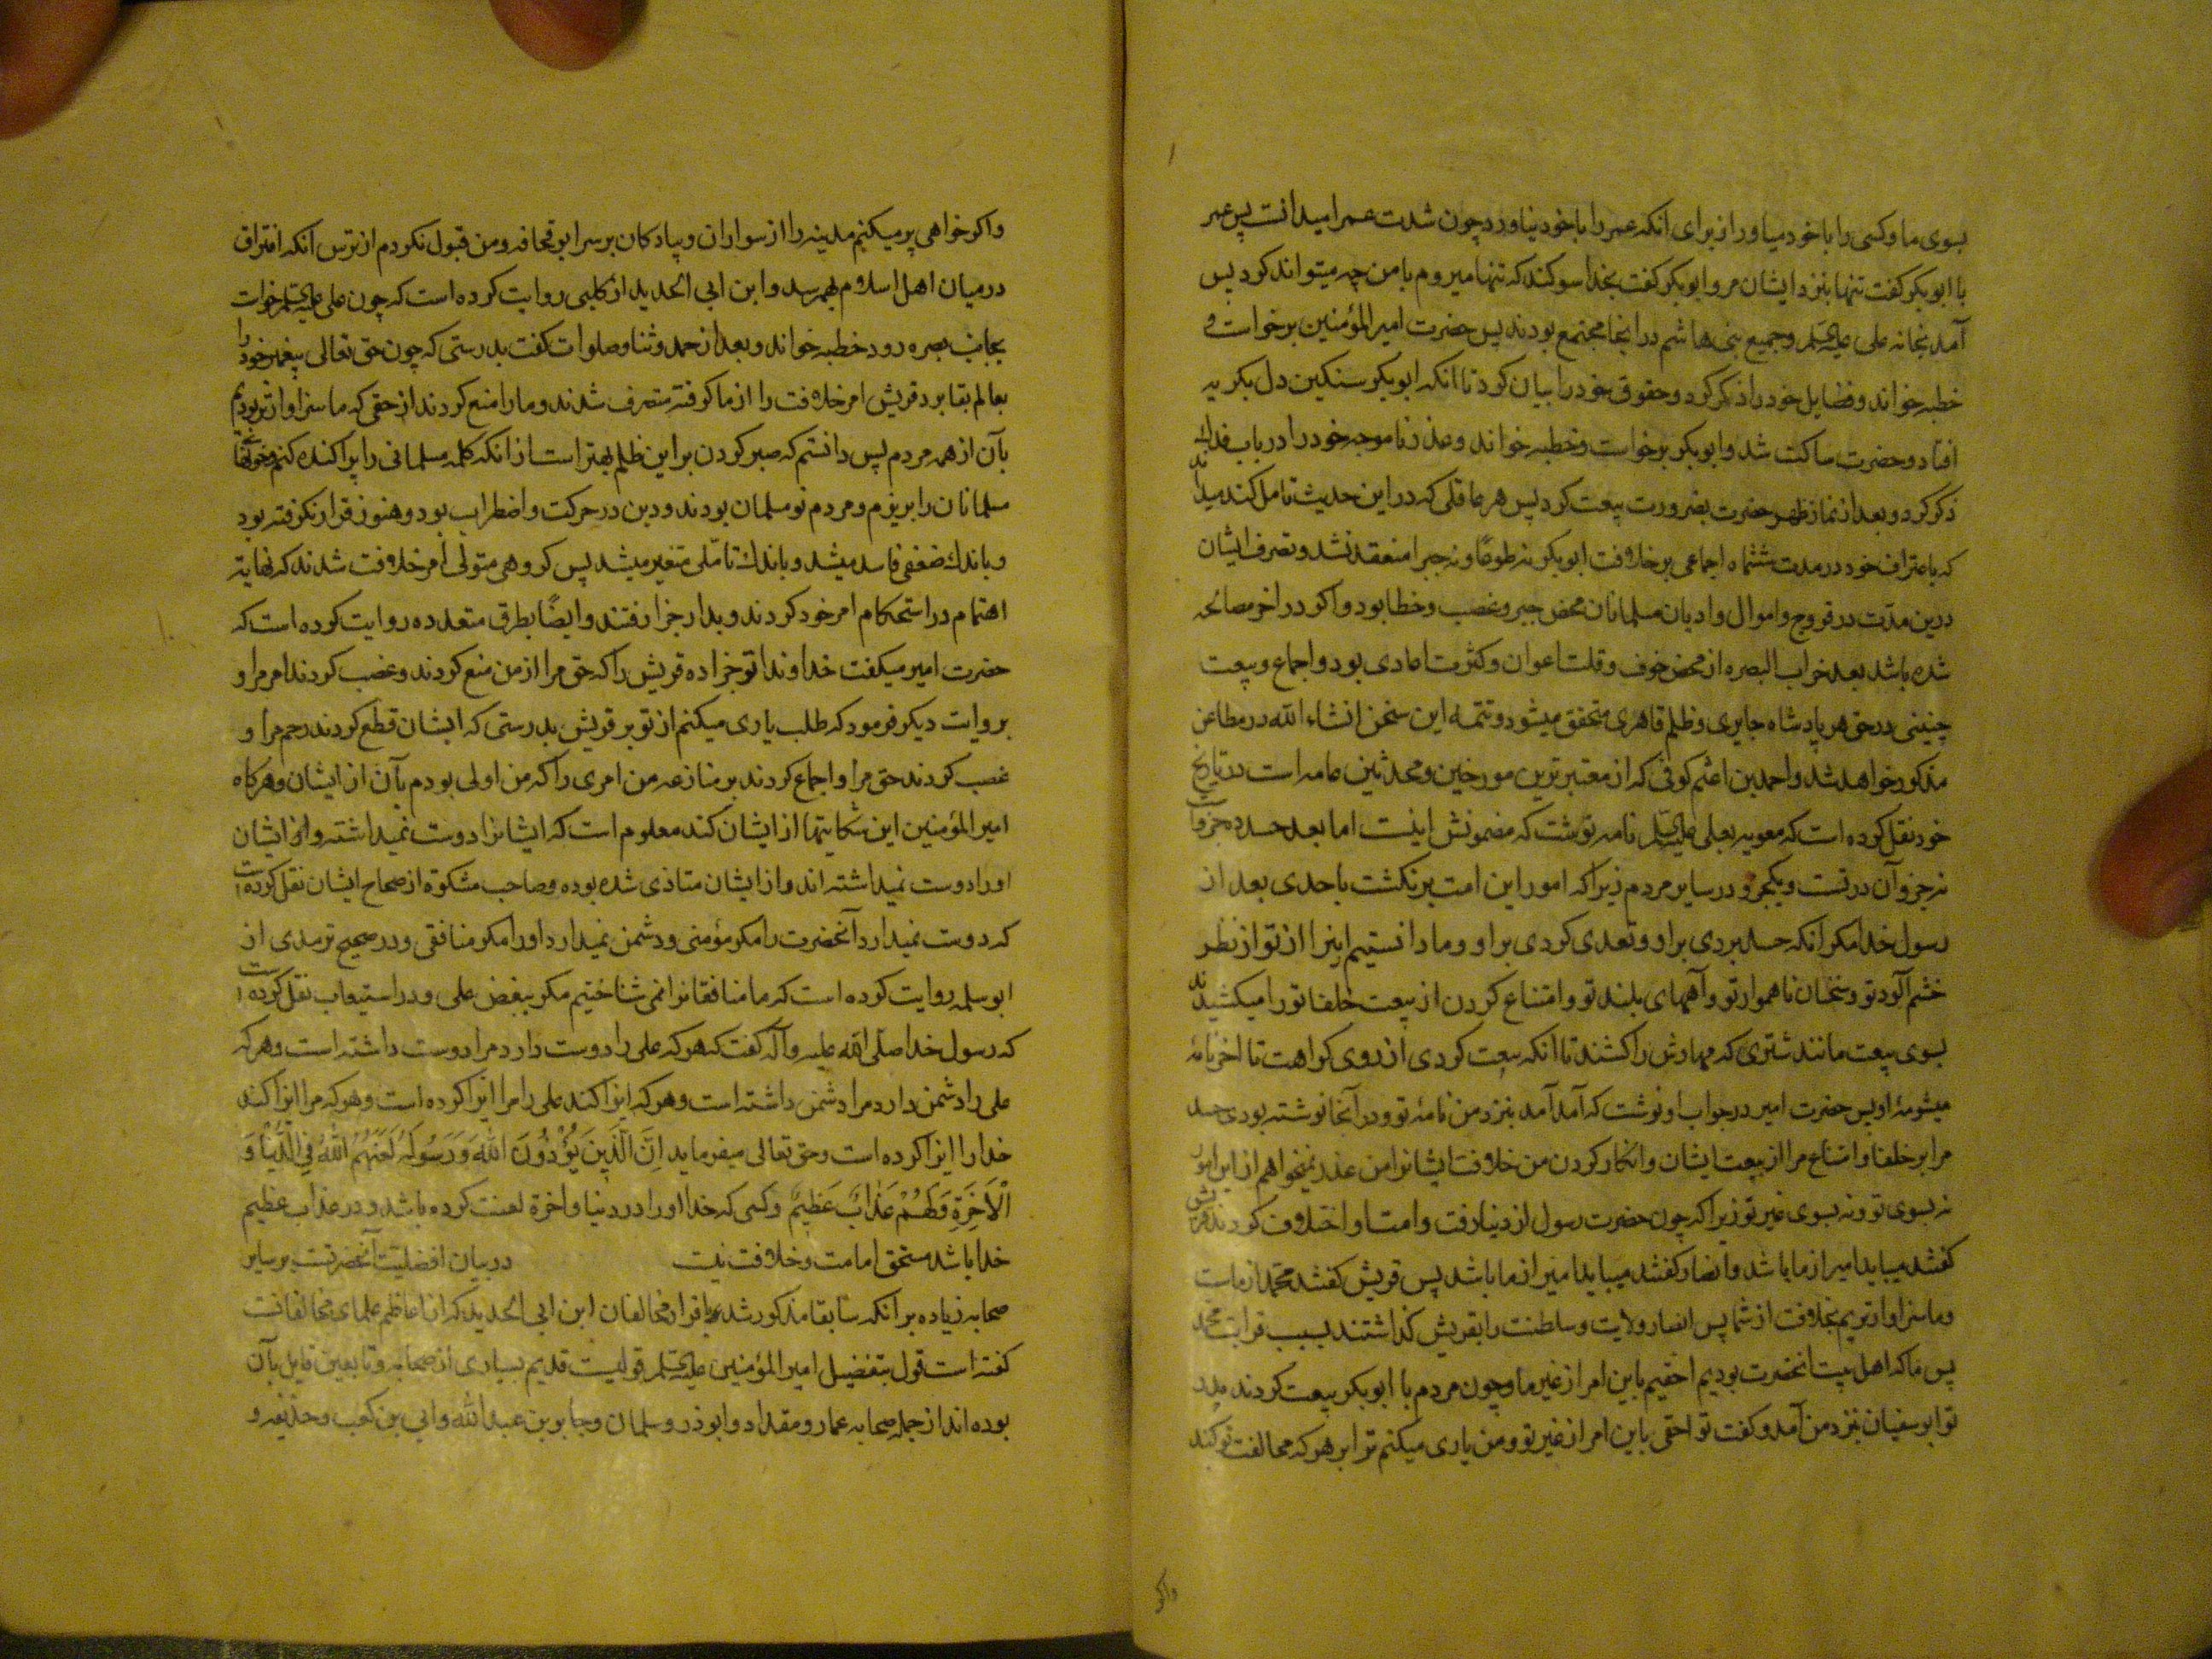 بسوی ما و کسی را با خود میاور از برای انکه عمر را با خود نیاورد چون شدت عمر را میدانست پس عمر
با ابوبکر کفت تنها بنزد ایشان مرو ابوبکر کفت بخدا سوکند که تنها میروم با من چه میتوانند کرد پس
آمد بخانه علی علیه السلم و جمیع بنی هاشم در انجا مجتمع بودند پس حضرت امیر المؤمنین برخواست و
خطبه خواند و فضایل خود را ذکر کرد و حقوق خود را بیان کرد تا انکه ابوبکر سنکین دل بکریه
افتاد و حضرت ساکت شد و ابوبکر برخواست و خطبه خواند و عذر ناموجه خود را در باب فدک
ذکر کرد و بعد از نماز ظهر حضرت بضرورت بیعت کرد پس هر عاقلی که در این حدیث تامل کند میداند
که باعتراف خود در مدت ششماه اجماعی بر خلافت ابوبکر نه طوعًا و نه جبرا منعقد نشد و تصرف ایشان
درین مدّت در فروج و اموال و ادیان مسلمانان محض جبر و غصب و خطا بود و اکر در اخر مصالحه
شده باشد بعد خراب البصره از محض خوف و قلت اعوان و کثرت اعادی بود و اجماع و بیعت
چنینی در حق هر پادشاه جایری و ظلم قاهری متحقق میشود و تتمه این سخن انشاء الله در مطاعن
مذکور خواهد شد و احمد بن اعثم کوفی که از معتبر ترین مورخین و محدثین عامه است در تاریخ
خود نقل کرده است که معویه بعلی علیه السلم نامه نوشت که مضمونش اینست اما بعد حسد ده جزو است
نه جزو آن در تست و یکجزو در سایر مردم زیرا که امور این امت برنکشت باحدی بعد از
رسول خدا مکر انکه حسد بردی بر او و تعدی کردی بر او و ما دانستیم اینرا از تو از نظر
خشم آلود تو و سخنان ناهموار تو و آههای بلند تو و امتناع کردن از بیعت خلفا تو را میکشیدند
بسوی بیعت مانند شتری که مهارش را کشند تا انکه بیعت کردی از روی کراهت تا اخر نامه
میشومهٔ او پس حضرت امیر در جواب او نوشت که آمد آمد بنزد من نامهٔ تو و در آنجا نوشته بودی حسد
مرا بر خلفا و امتناع مرا از بیعت ایشان و انکار کردن من خلافت ایشانرا من عذر نمیخواهم از این امور
نه بسوی تو و نه بسوی غیر تو زیرا که چون حضرت رسول از دنیا رفت و امت او اختلاف کردند قریش
کفتند میباید امیر از ما باشد و انصار کفتند میباید امیر از ما باشد پس قریش کفتند محمّد از ماست
و ما سزاوارتریم بخلافت از شما پس انصار ولایت و سلطنت را بقریش کذاشتند بسبب قرابت محمد
پس ما که اهل بیت انحضرت بودیم احقیم باین امر از غیر ما و چون مردم با ابوبکر بیعت کردند پدر
تو ابوسفیان بنزد من آمد و کفت تو احقی باین امر از غیر تو و من یاری میکنم ترا بر هر که مخالفت تو کند
واکر
واکر خواهی پر میکنم مدینه را از سواران و پیادکان بر سر ابو قحافه و من قبول نکردم از ترس آنکه افتراق
در میان اهل اسلام بهم رسد و ابن ابی الحدید از کلبی روایت کرده است که چون علی علیه السلم خواست
بجانب بصره رود خطبه خواند و بعد از حمد و ثنا و صلوات کفت بدرستی که چون حق تعالی پیغمبر خود را
بعالم بقا برد قریش امر خلافت را از ما کرفته متصرف شدند و ما را منع کردند از حقی که ما سزاوارتر بودیم
بآن از همه مردم پس دانستم که صبر کردن بر این ظلم بهتر است از انکه کلمه مسلمانی را پراکنده کنم و خونهای
مسلمانان را بریزم و مردم نو مسلمان بودند و دین در حرکت و اضطراب بود و هنوز قرار نکرفته بود
و باندک ضعفی فاسد میشد و باندک تامّلی متغیر میشد پس کروهی متولی امر خلافت شدند که نهایة
اهتمام در استحکام امر خود کردند و بدار جزا رفتند و ایضًا بطرق متعدده روایت کرده است که
حضرت امیر میکفت خداوندا تو جزا ده قریش را که حق مرا از من منع کردند و غصب کردند امر مرا و
بروایت دیکر فرمود که طلب یاری میکنم از تو بر قریش بدرستی که ایشان قطع کردند رحم مرا و
غصب کردند حق مرا و اجماع کردند بر منازعه من امری را که من اولی بودم بآن از ایشان و هرکاه
امیر المؤمنین این شکایتها از ایشان کند معلوم است که ایشانرا دوست نمیداشته و ایشان
اورا دوست نمیداشته اند و از ایشان متاذی شده بوده و صاحب مشکوة از صحاح ایشان نقل کرده است
که دوست نمیدارد آنحضرت را مکر مؤمنی و دشمن نمیدارد اورا مکر منافقی و در صحیح ترمذی از
ابو سلمه روایت کرده است که ما منافقانرا نمی شناختیم مکر ببغض علی و در استیعاب نقل کرده است
که رسول خدا صلی الله علیه و آله کفت که هر که علی را دوست دارد مرا دوست داشته است و هر که
علی را دشمن دارد مرا دشمن داشته است و هر که ایذا کند علی را مرا ایذا کرده است و هر که مرا ایذا کند
خدا را ایذا کرده است و حق تعالی میفرماید اِنَّ الَّذِینَ یُؤْذُونَ اللّٰهَ وَرَسُولَهُ لَعَنَهُمُ اللّٰهُ فِی الدُّنْیَا وَ
الْاٰخِرَةِ وَلَهُمْ عَذَابٌ عَظِیمٌ و کسی که خدا اورا در دنیا و اخرة لعنت کرده باشد و در عذاب عظیم
خدا باشد مستحق امامت و خلافت نیست در بیان افضلیّت آنحضرتست بر سایر
صحابه زیاده بر انکه سابقا مذکور شد باقرار مخالفان ابن ابی الحدید که از اعاظم علمای مخالفانست
کفته است قول بتفضیل امیر المؤمنین علیه السلم قولیست قدیم بسیاری از صحابه و تابعین قایل بآن
بوده اند از جمله صحابه عمار و مقداد و ابوذر و سلمان و جابر بن عبد الله و ابی بن کعب و حذیفه و